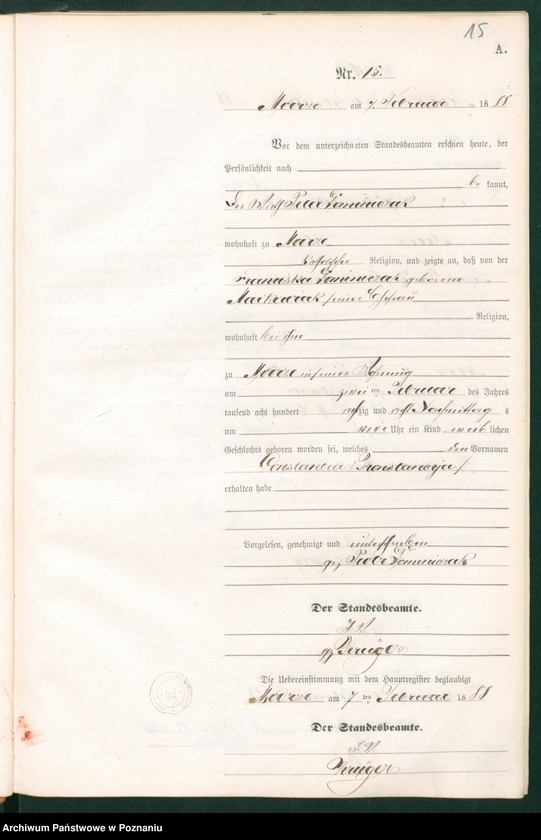 15
A.
Nr. 15.
am 7. Februar 1888
Vor dem unterzeichneten Standesbeamten erschien heute, der
Persönlichkeit nach
be kannt,
Der Wirth Peter Dominiczak
wohnhaft zu
katholischer Religion, und zeigte an, daß von der
Franciska Dominiczak geborene
seiner Ehefrau
Religion,
wohnhaft bei ihm
zu in seiner Wohnung
am zwei ten Februar des Jahres
tausend acht hundert achtzig und acht Nachmittags
um Uhr ein Kind weib lichen
Geschlechts geboren worden sei, welches den Vornamen
Constantia
erhalten habe
Vorgelesen, genehmigt und unterschrieben
gez Dominiczak
Der Standesbeamte.
I.V.
gez Krüger
Die Uebereinstimmung mit dem Hauptregister beglaubigt
am 7 ten Februar 1888
Der Standesbeamte.
I.V.
Krüger
Archiwum Państwowe w Poznaniu